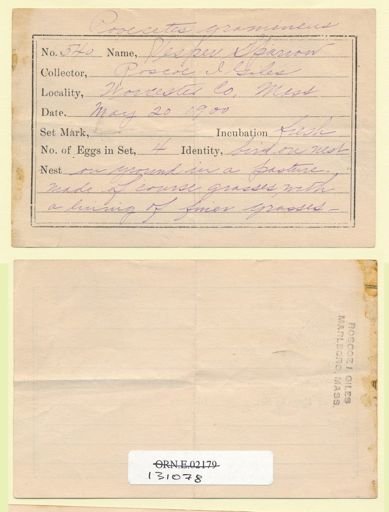 Pooecetes gramineus
No. 540 Name, Vesper Sparrow
Collector, Roscoe I Giles
Locality, Worcester Co, Mass
Date, May 20 1900
Set Mark, Incubation Fresh
No. of Eggs in Set, 4 Identity, bird on nest
Nest on ground in a pasture.
made of course grasses with
a lining of finer grasses—
ROSCOE I. GILES
MARLBORO, MASS.
ORN.E.02179
131078